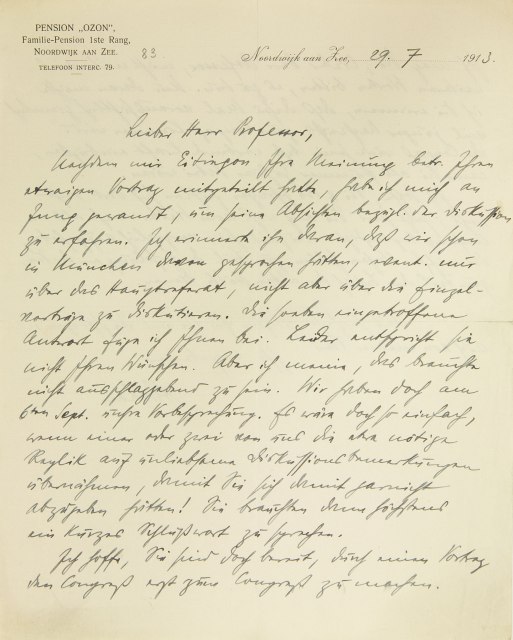 PENSION „OZON”,
Familie-Pension 1ste Rang,
NOORDWIJK AAN ZEE.
TELEFOON INTERC. 79.
83
Noordwijk aan Zee, 29. 7 1913.
Lieber Herr Professor,
Nachdem mir Eitingon Ihre Meinung betr. Ihren
etwaigen Vortrag mitgeteilt hatte, habe ich mich an
Jung gewandt, um seine Absichten bezügl. der Diskussion
zu erfahren. Ich erinnerte ihn daran, daß wir schon
in München davon gesprochen hätten, event. nur
über das Hauptreferat, nicht aber über die Einzel-
vorträge zu diskutieren. Die soeben eingetroffene
Antwort füge ich Ihnen bei. Leider entspricht sie
nicht Ihren Wünschen. Aber ich meine, das brauchte
nicht ausschlaggebend zu sein. Wir haben doch am
6ten Sept. unsre Vorbesprechung. Es wäre doch so einfach,
wenn einer oder zwei von uns die etwa nötige
Replik auf unliebsame Diskussionsbemerkungen
übernähmen, damit Sie sich damit garnicht
abzugeben hätten! Sie brauchten dann höchstens
ein kurzes Schlußwort zu sprechen.
Ich hoffe, Sie sind doch bereit, durch einen Vortrag
den Congreß erst zum Congreß zu machen.